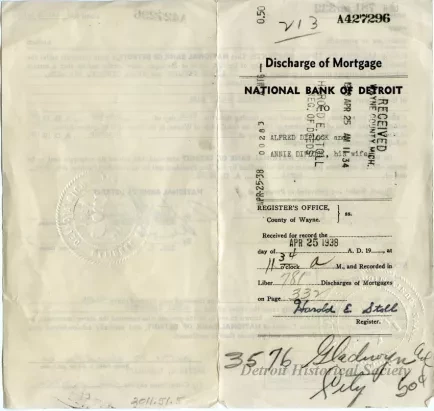 213
A427296
0.50
Discharge of Mortgage
NATIONAL BANK OF DETROIT
TO
HAROLD E. STOLL
REG. OF DEEDS
1938 APR 25 AM 11 34
RECEIVED
WAYNE COUNTY, MICH.
APR-25-38 00283
ALFRED and
ANNIE his wife
REGISTER'S OFFICE,
County of Wayne.
ss.
Received for record the
APR 25 1938
day of A. D. 19 , at
11 34 o'clock a M., and Recorded in
Liber 781 Discharges of Mortgages
on Page 332
Harold E Stoll
Register.
3576 Gladwyn
Detroit Historical Society
City 50¢